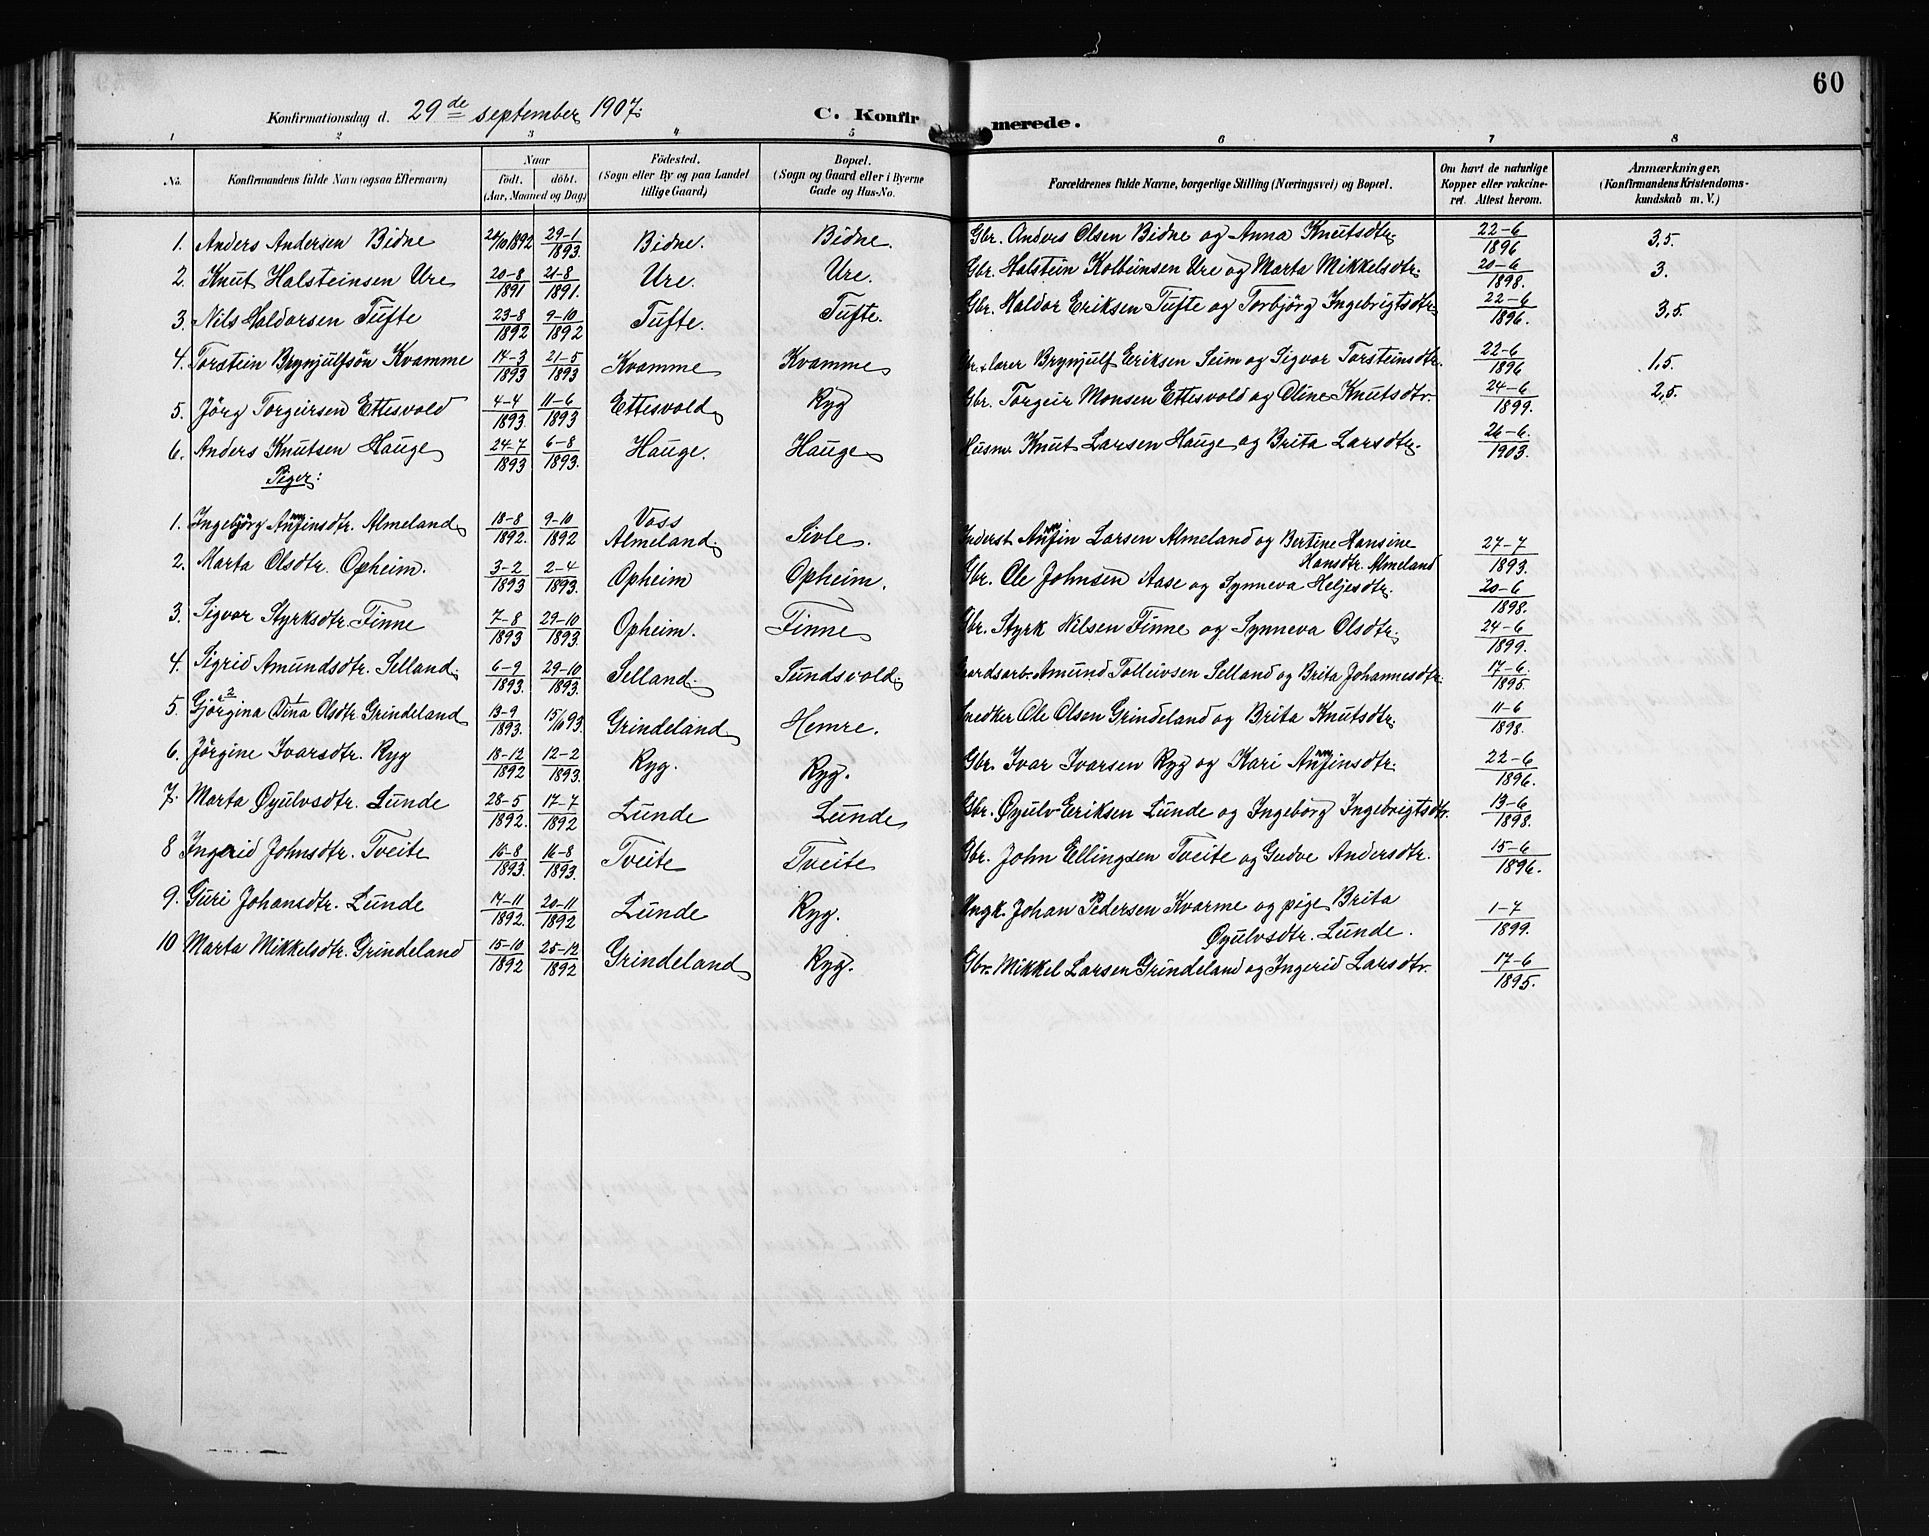 60
Konfirmationsdag d. 29de september 1907. C. Konfirmerede.
1 2 3 4 5 6 7 8
No. | Konfirmandens fulde Navn (ogsaa Efternavn) | Naar født. døbt. (Aar, Maaned og Dag) | Fødested. (Sogn eller By og paa Landet tillige Gaard) | Bopæl. (Sogn og Gaard eller i Byerne Gade og Hus-No. | Forældrenes fulde Navne, borgerlige Stilling (Næringsvei) og Bopæl. | Om havt de naturlige Kopper eller vakcineret. Attest herom. | Anmærkninger, (Konfirmandens Kristendomskundskab m. V.)
1. Anders Andersen Bidne | 20/10 1892 | 29-1 1893. | Bidne. | Bidne. | Gbr. Anders Olsen Bidne og Anna Knutsdtr. | 22-6 1896 | 3,5.
2. Knut Halsteinsen Ure | 20-8 1891 | 21-8 1891. | Ure. | Ure. | Gbr. Halstein Kolbeinsen Ure og Marta Mikkelsdtr. | 20-6 1898. | 3.
3. Nils Haldorsen Tufte | 23-8 1892 | 9-10 1892 | Tufte. | Tufte. | Gbr. Haldor Eriksen Tufte og Torbjörg Ingebrigtsdtr. | 22-6 1896. | 3,5.
4. Torstein Brynjulfsön Kvamme | 14-3 1893 | 21-5 1893 | Kvamme | Kvamme | lærer Brynjulf Eriksen Seim og Sigvor Torsteinsdtr. | 22-6 1896 | 1,5.
5. Jörg Torgeirsen Ettesvold | 4-4 1893. | 11-6 1893 | Ettesvold | Ryg | Gbr. Torgeir Monsen Ettesvold og Oline Knutsdtr. | 24-6 1899. | 2,5.
6. Anders Knutsen Hauge | 24-7 1893 | 6-8 1893. | Hauge. | Hauge | Husm. Knut Larsen Hauge og Brita Larsdtr. | 26-6. 1903.
Piger:
1. Ingebjörg Anfinsdtr. Almeland | 18-8 1892. | 9-10 1892 | Voss Almeland. | Sivle. | Inderst Anfin Larsen Almeland og Bertine Hansine Hansdtr. Almeland | 27-7 1893.
2. Marta Olsdtr. Opheim. | 3-2 1893 | 2-4 1893. | Opheim | Opheim. | Gbr. Ole Johnsen Aase og Synneva Heljesdtr. | 20-6 1898.
3. Sigvor Styrksdtr. Finne | 7-8 1893 | 29-10 1893. | Opheim. | Finne | Gbr. Styrk Nilsen Finne og Synneva Olsdtr. | 24-6 1899.
4. Sigrid Amundsdtr. Selland. | 6-9 1893. | 29-10 1893. | Selland. | Sundsvold. | Gaardsarb. Amund Tolleivsen Selland og Brita Johannesdtr. | 17-6. 1895.
5. Gjörgina 2 Dina 1 Olsdtr. Grindeland | 13-9 1893. | 15/10 93. | Grindeland | Hemre. | Snedker Ole Olsen Grindeland og Brita Knutsdtr. | 11-6 1898.
6. Jörgine Ivarsdtr. Ryg | 18-12 1892 | 12-2 1893. | Ryg. | Ryg. | Gbr. Ivar Ivarsen Ryg og Kari Anfinsdtr. | 22-6 1896.
7. Marta Øyulvsdtr. Lunde | 28-5 1892. | 17-7 1892 | Lunde | Lunde | Gbr. Øyulv Eriksen Lunde og Ingeborg Ingebrigtsdtr. | 13-6 1898.
8 Ingerid Johnsdtr. Tveite | 16-8 1893. | 16-8 1893. | Tveite | Tveite | Gbr. John Ellingsen Tveite og Gudve Andersdtr. | 15-6 1896.
9. Guri Johansdtr. Lunde | 14-11 1892. | 20-11 1892 | Lunde | Ryg. | Ungk. Johan Pedersen Kvarme og pige Brita Øyulvsdtr. Lunde. | 1-7 1899.
10 Marta Mikkelsdtr. Grindeland | 15-10 1892 | 25-12 1892 | Grindeland | Ryg. | Gbr. Mikkel Larsen Grindeland og Ingerid Larsdtr. | 17-6 1895.